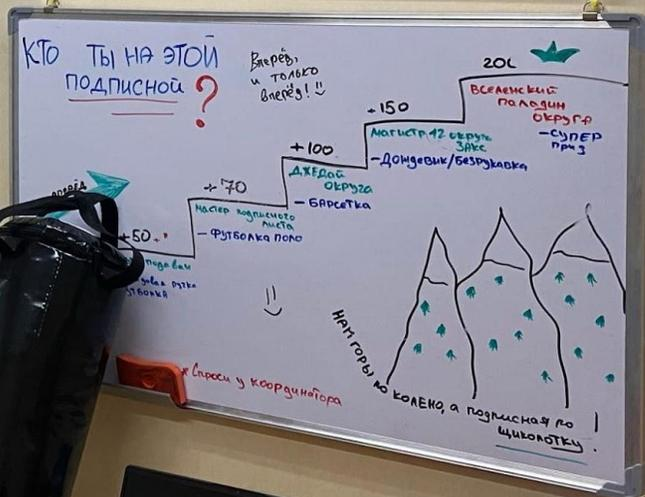 КТО ТЫ НА ЭТОЙ
ПОДПИСНОЙ ?
Вперёд,
и только
вперёд!
200
ВСЕЛЕНСКИЙ
ПАЛАДИН
ОКРУГА
-СУПЕР
ПРИЗ
+150
МАГИСТР 42 ОКРУГА
ЗАКС
-ДОЖДЕВИК/БЕЗРУКАВКА
+100
ДЖЕДАЙ
ОКРУГА
- БАРСЕТКА
+ 70
МАСТЕР ПОДПИСНОГО
ЛИСТА
- ФУТБОЛКА ПОЛО
+50
ручка
* Спроси у координатора
НАМ ГОРЫ ПО КОЛЕНО, А ПОДПИСНАЯ ПО
ЩИКОЛОТКУ !